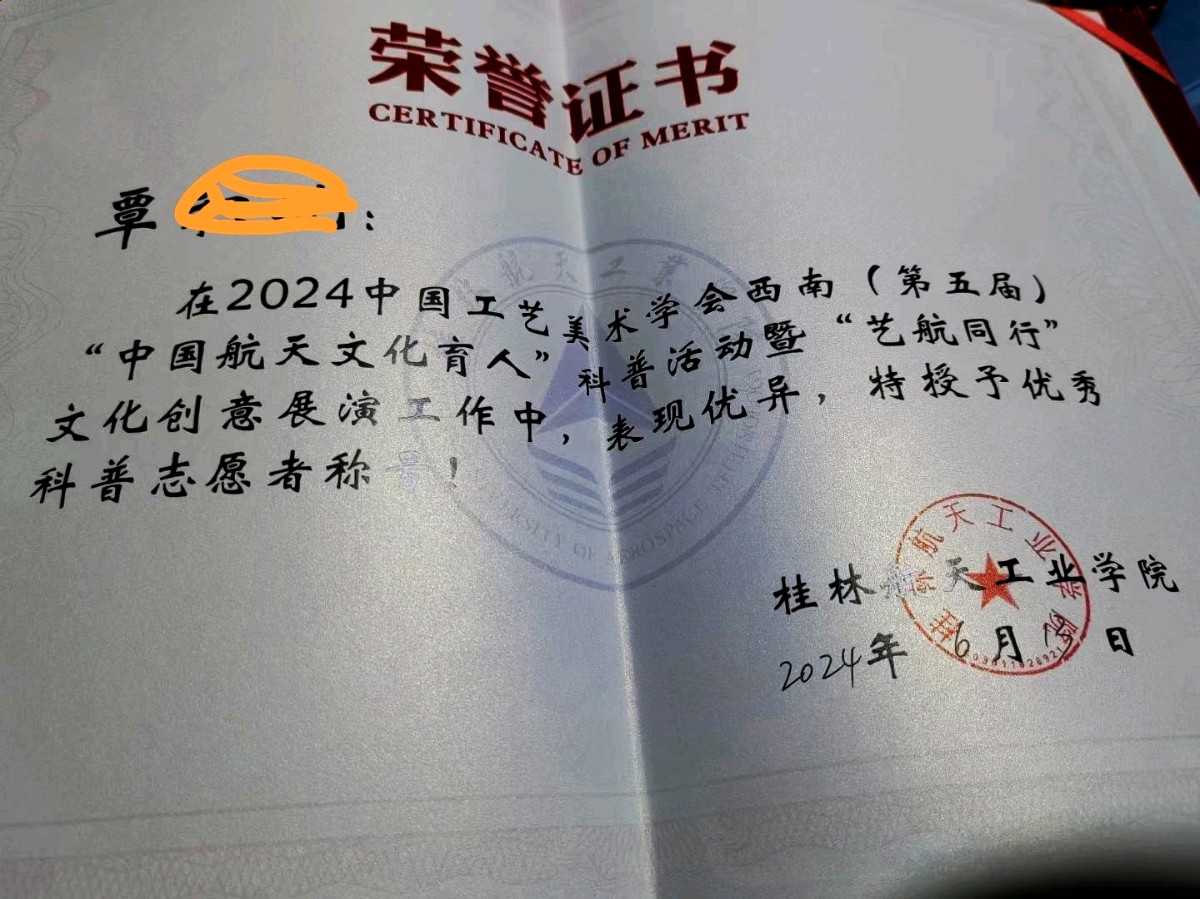 荣誉证书
CERTIFICATE OF MERIT
覃 :
在2024中国工艺美术学会西南（第五届）
“中国航天文化育人”科普活动暨“艺航同行”
文化创意展演工作中，表现优异，特授予优秀
科普志愿者称号！
桂林航天工业学院
2024年6月 日